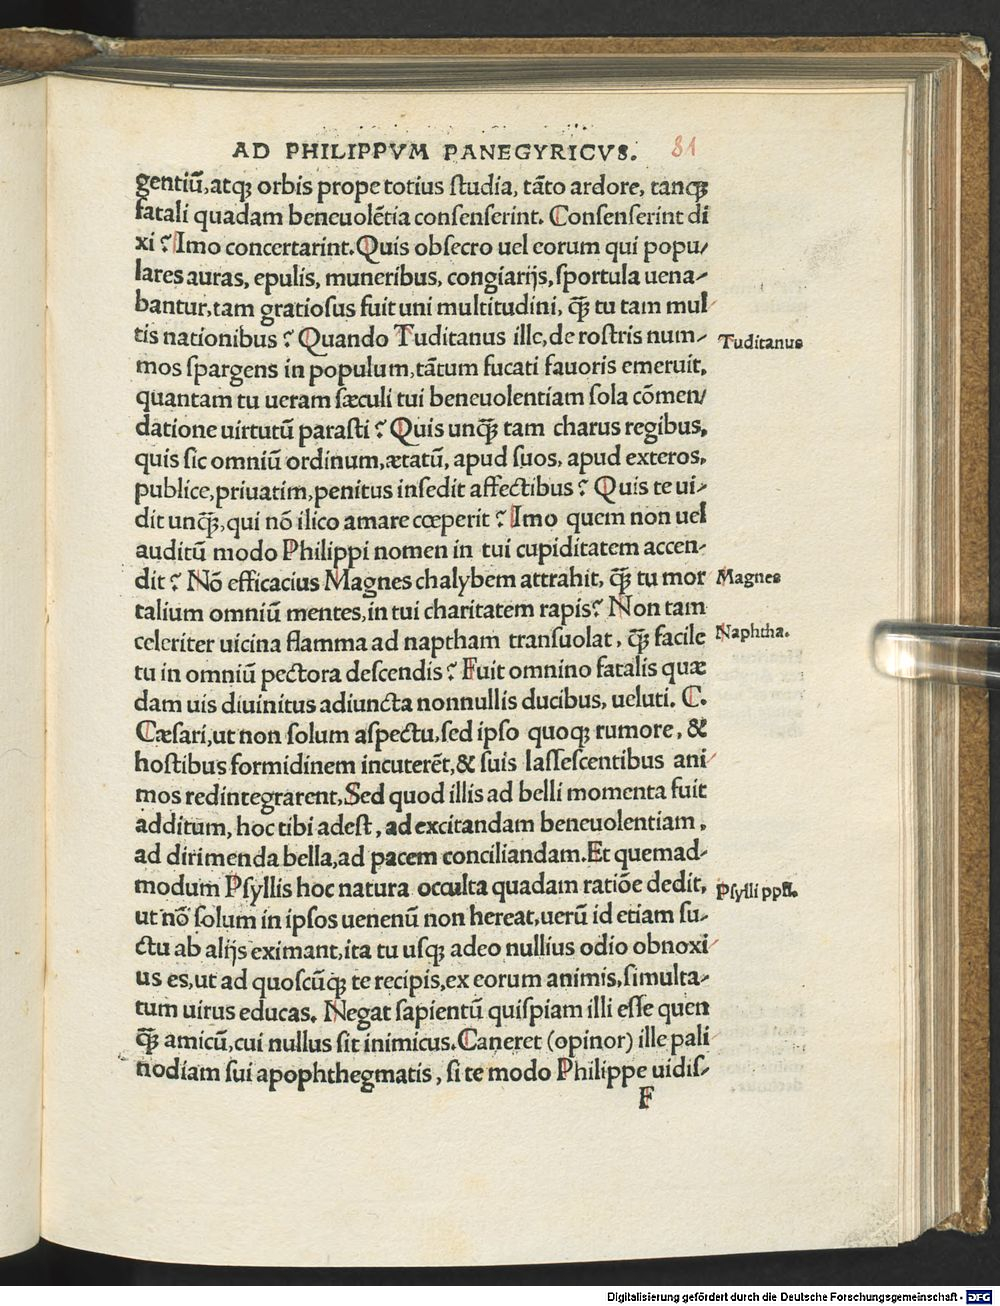 AD PHILIPPVM PANEGYRICVS. 31
gentiū,atqꝫ orbis prope totius ſtudia, tāto ardore, tanqꝫ̄
fatali quadam beneuolētia conſenſerint. Conſenſerint di
xi? Imo concertarint. Quis obſecro uel eorum qui popu/
lares auras, epulis, muneribus, congiarijs, ſportula uena-
bantur, tam gratioſus fuit uni multitudini, qꝫ̄ tu tam mul/
tis nationibus? Quando Tuditanus ille, de roſtris num-
Tuditanus
mos ſpargens in populum, tātum fucati fauoris emeruit,
quantam tu ueram ſæculi tui beneuolentiam ſola cōmen/
datione uirtutū paraſti? Quis unqꝫ̄ tam charus regibus,
quis ſic omniū ordinum, ætatū, apud ſuos, apud exteros,
publice, priuatim, penitus inſedit affectibus? Quis te ui-
dit unqꝫ̄, qui nō ilico amare cœperit? Imo quem non uel
auditū modo Philippi nomen in tui cupiditatem accen-
dit? Nō efficacius Magnes chalybem attrahit, qꝫ̄ tu mor
Magnes
talium omniū mentes, in tui charitatem rapis? Non tam
celeriter uicina flamma ad naptham tranſuolat, qꝫ̄ facile
Naphtha.
tu in omniū pectora deſcendis? Fuit omnino fatalis quæ
dam uis diuinitus adiuncta nonnullis ducibus, ueluti. C.
Cæſari, ut non ſolum aſpectu, ſed ipſo quoqꝫ rumore, &
hoſtibus formidinem incuterēt, & ſuis laſſeſcentibus ani/
mos redintegrarent, Sed quod illis ad belli momenta fuit
additum, hoc tibi adeſt, ad excitandam beneuolentiam,
ad dirimenda bella, ad pacem conciliandam. Et quemad-
modum Pſyllis hoc natura occulta quadam ratiōe dedit,
Pſylli ppłi.
ut nō ſolum in ipſos uenenū non hereat, uerū id etiam ſu-
ctu ab alijs eximant, ita tu uſqꝫ adeo nullius odio obnoxi/
us es, ut ad quoſcūqꝫ te recipis, ex eorum animis, ſimulta-
tum uirus educas. Negat ſapientū quiſpiam illi eſſe quen
qꝫ̄ amicū, cui nullus ſit inimicus. Caneret (opinor) ille pali/
nodiam ſui apophthegmatis, ſi te modo Philippe uidiſ-
F
Digitalisierung gefördert durch die Deutsche Forschungsgemeinschaft - DFG